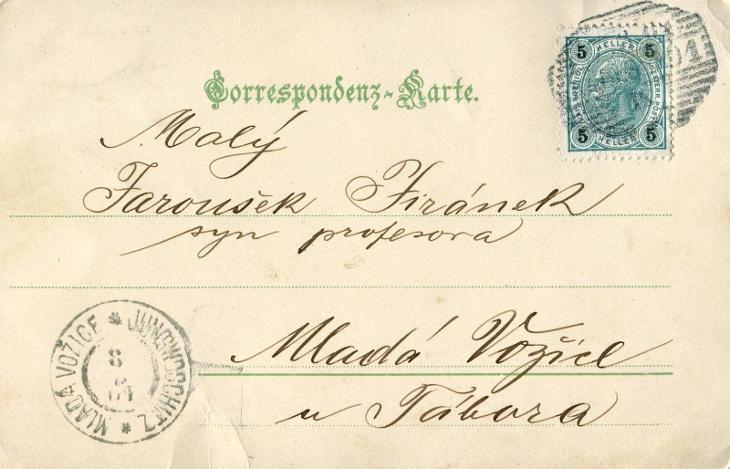 Correspondenz-Karte.
5 HELLER 5
5 HELLER 5
01
Malý
Jaroušek Jiránek
syn profesora
Mladá Vožice
u Tábora
MLADÁ VOŽICE * JUNGWOSCHITZ *
8
01